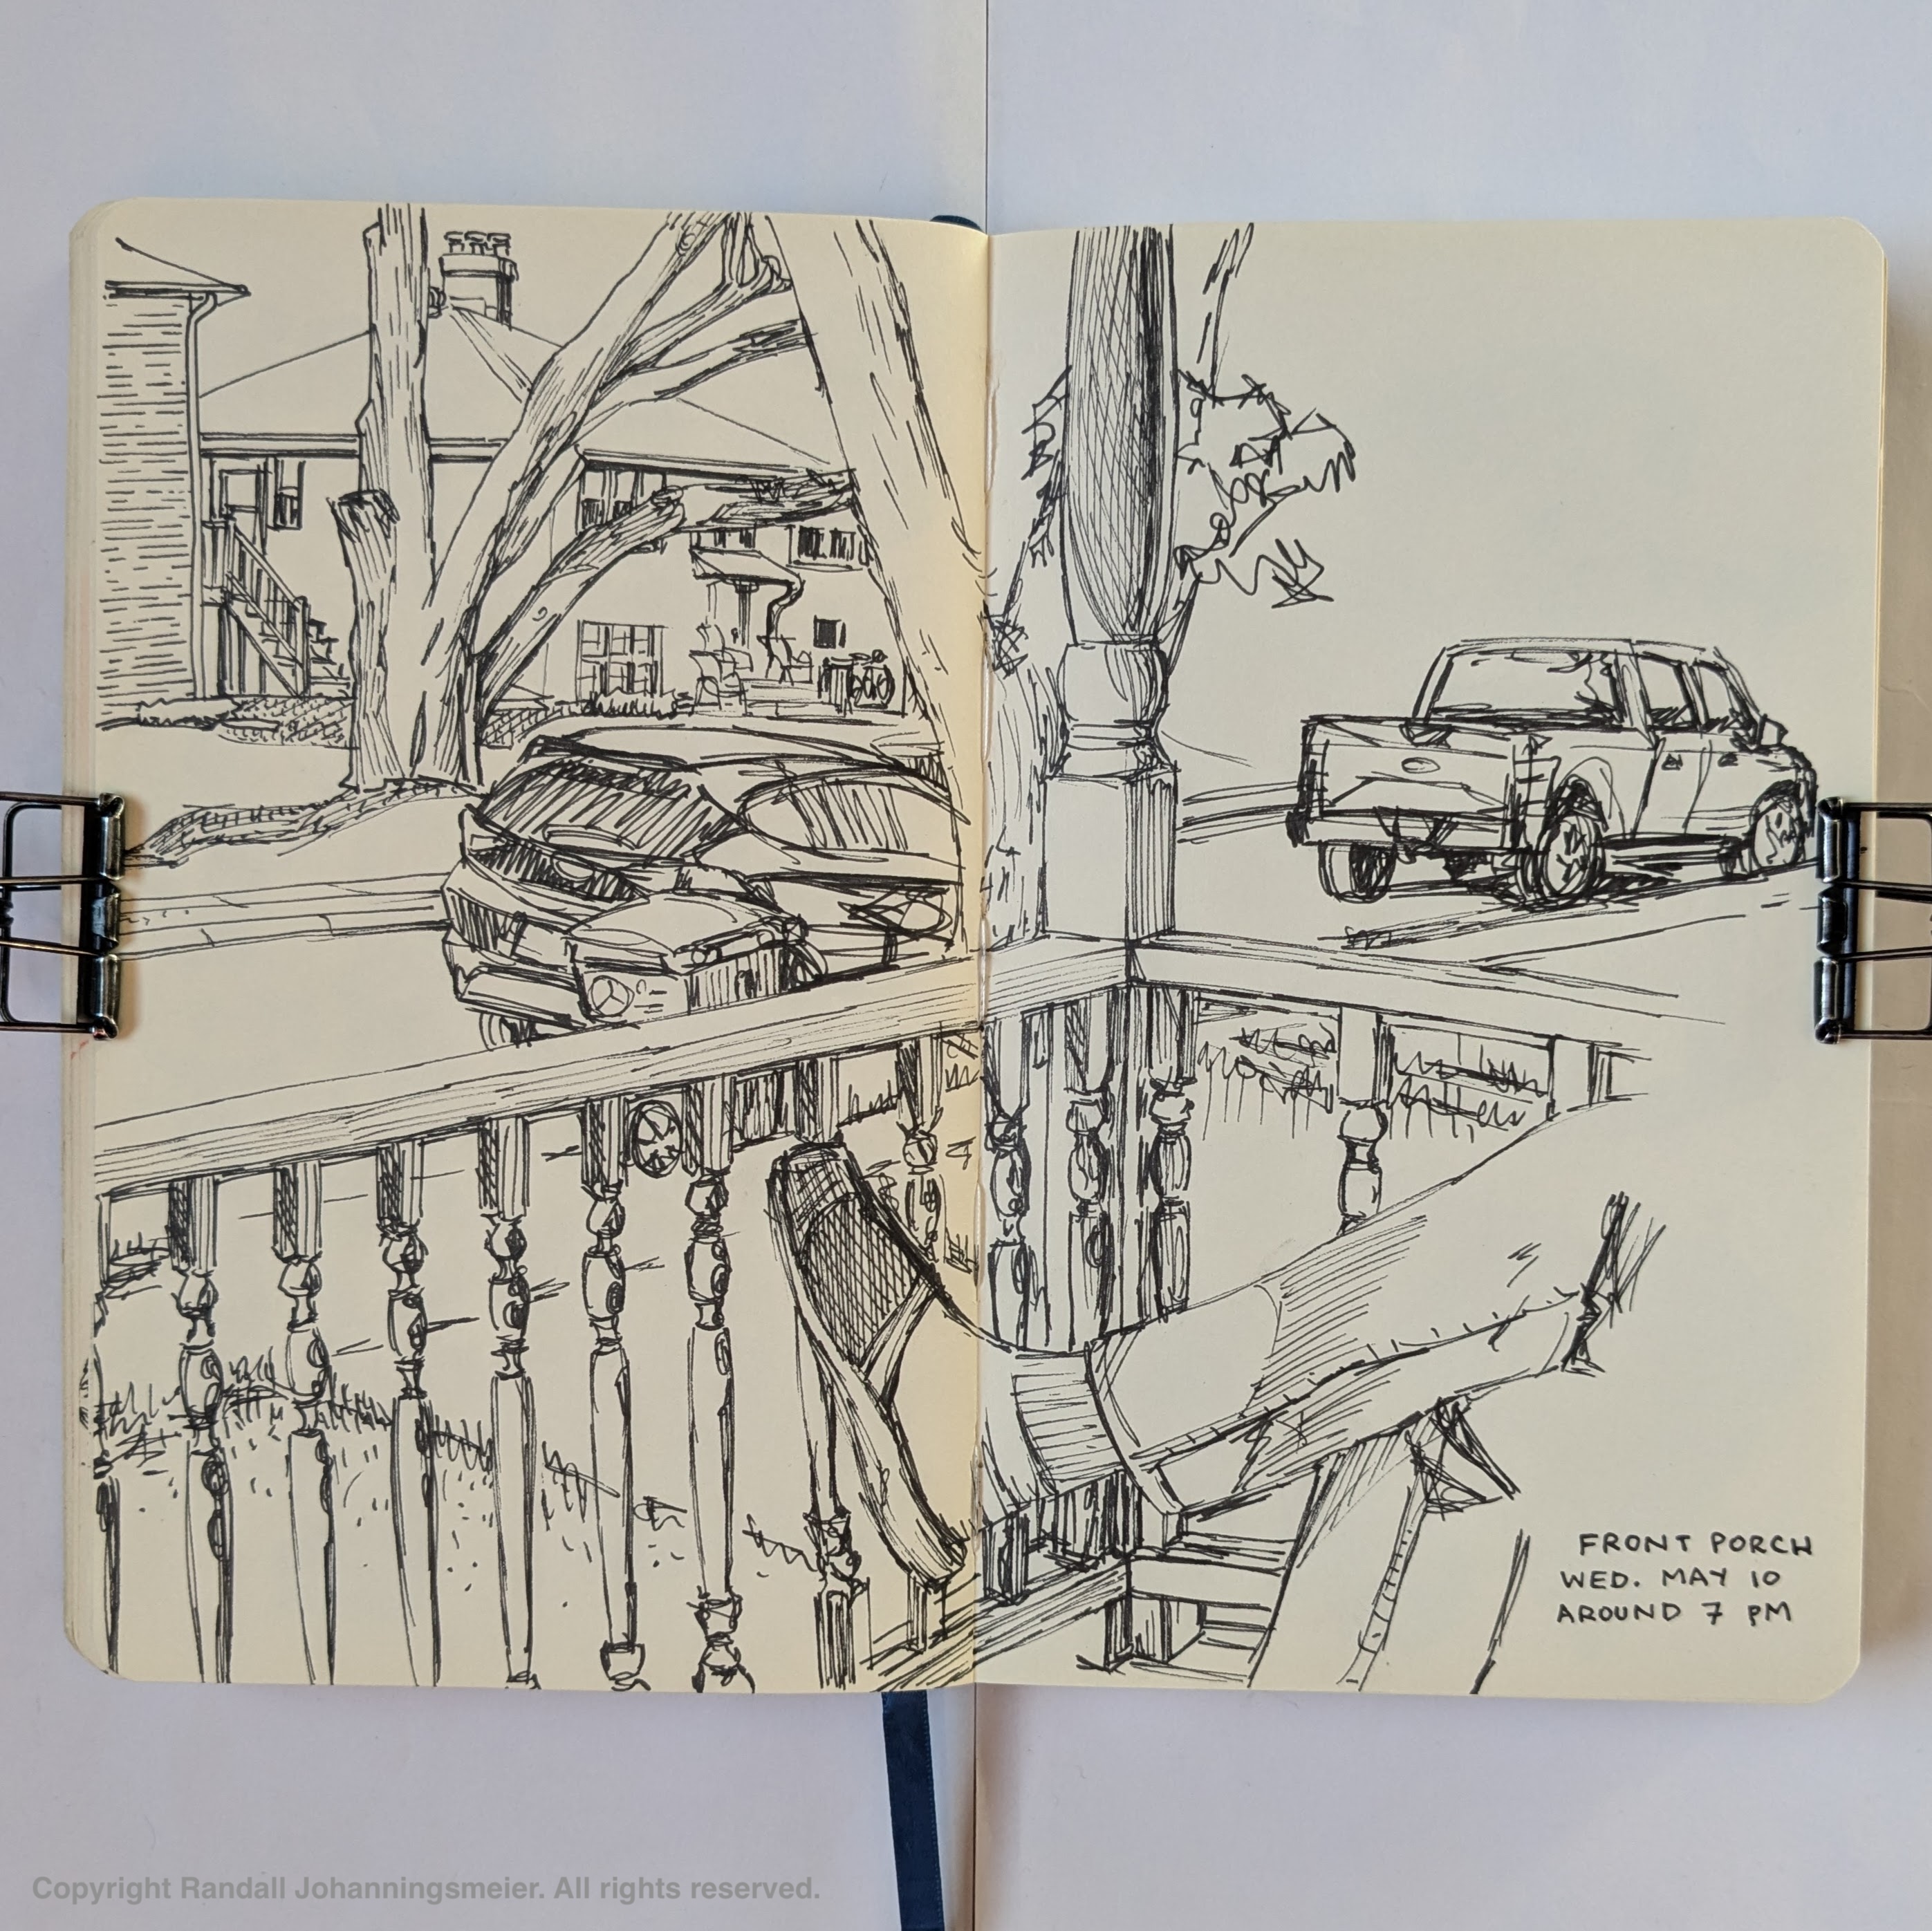 FRONT PORCH
WED. MAY 10
AROUND 7 PM
Copyright Randall Johanningsmeier. All rights reserved.